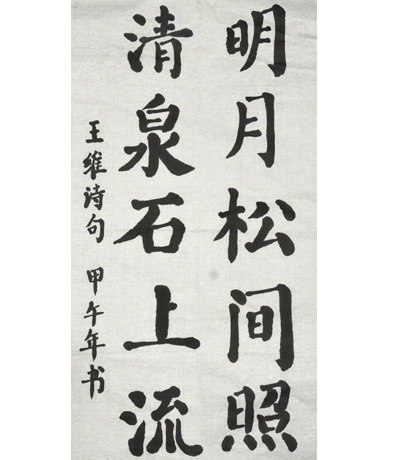 明月松间照
清泉石上流
王维诗句 甲午年书